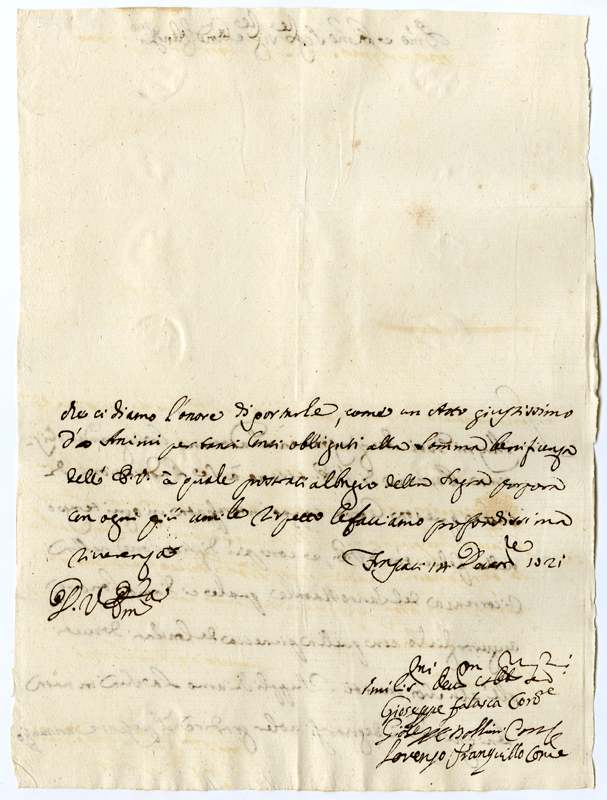 che ci diamo l'onore di portarle, come un Atto giustissimo
d'Animi per tanti Conti obbligati alla Somma beneficenza
dell' E.V. a quale prostrati al bagio della Sagra porpora
con ogni più umile rispetto le facciamo profondissima
riverenza
14 Decembre 1821
D. V. Em̃za
Umilis. Devot.
Gioseppe Falasca Conse
Conse
Lorenzo Tranquillo Conse